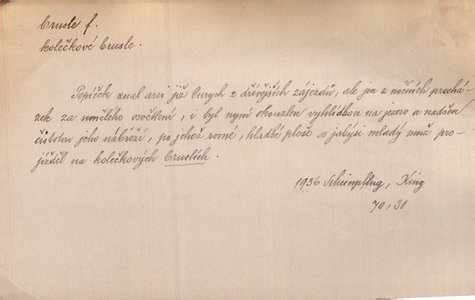 Brusle f.
kolečkové brusle.
Pepíček znal arci již Curych z dřívějších zájezdů, ale jen z nočních prochá-
zek za umělého osvětlení, i byl nyní okouzlen vyhlídkou na jezero a nadšen
čistotou jeho nábřeží, po jehož rovné, hladké ploše se jakýsi mladý muž pro-
jížděl na kolečkových Bruslích.
1936 Scheinpflug, King
70, 31